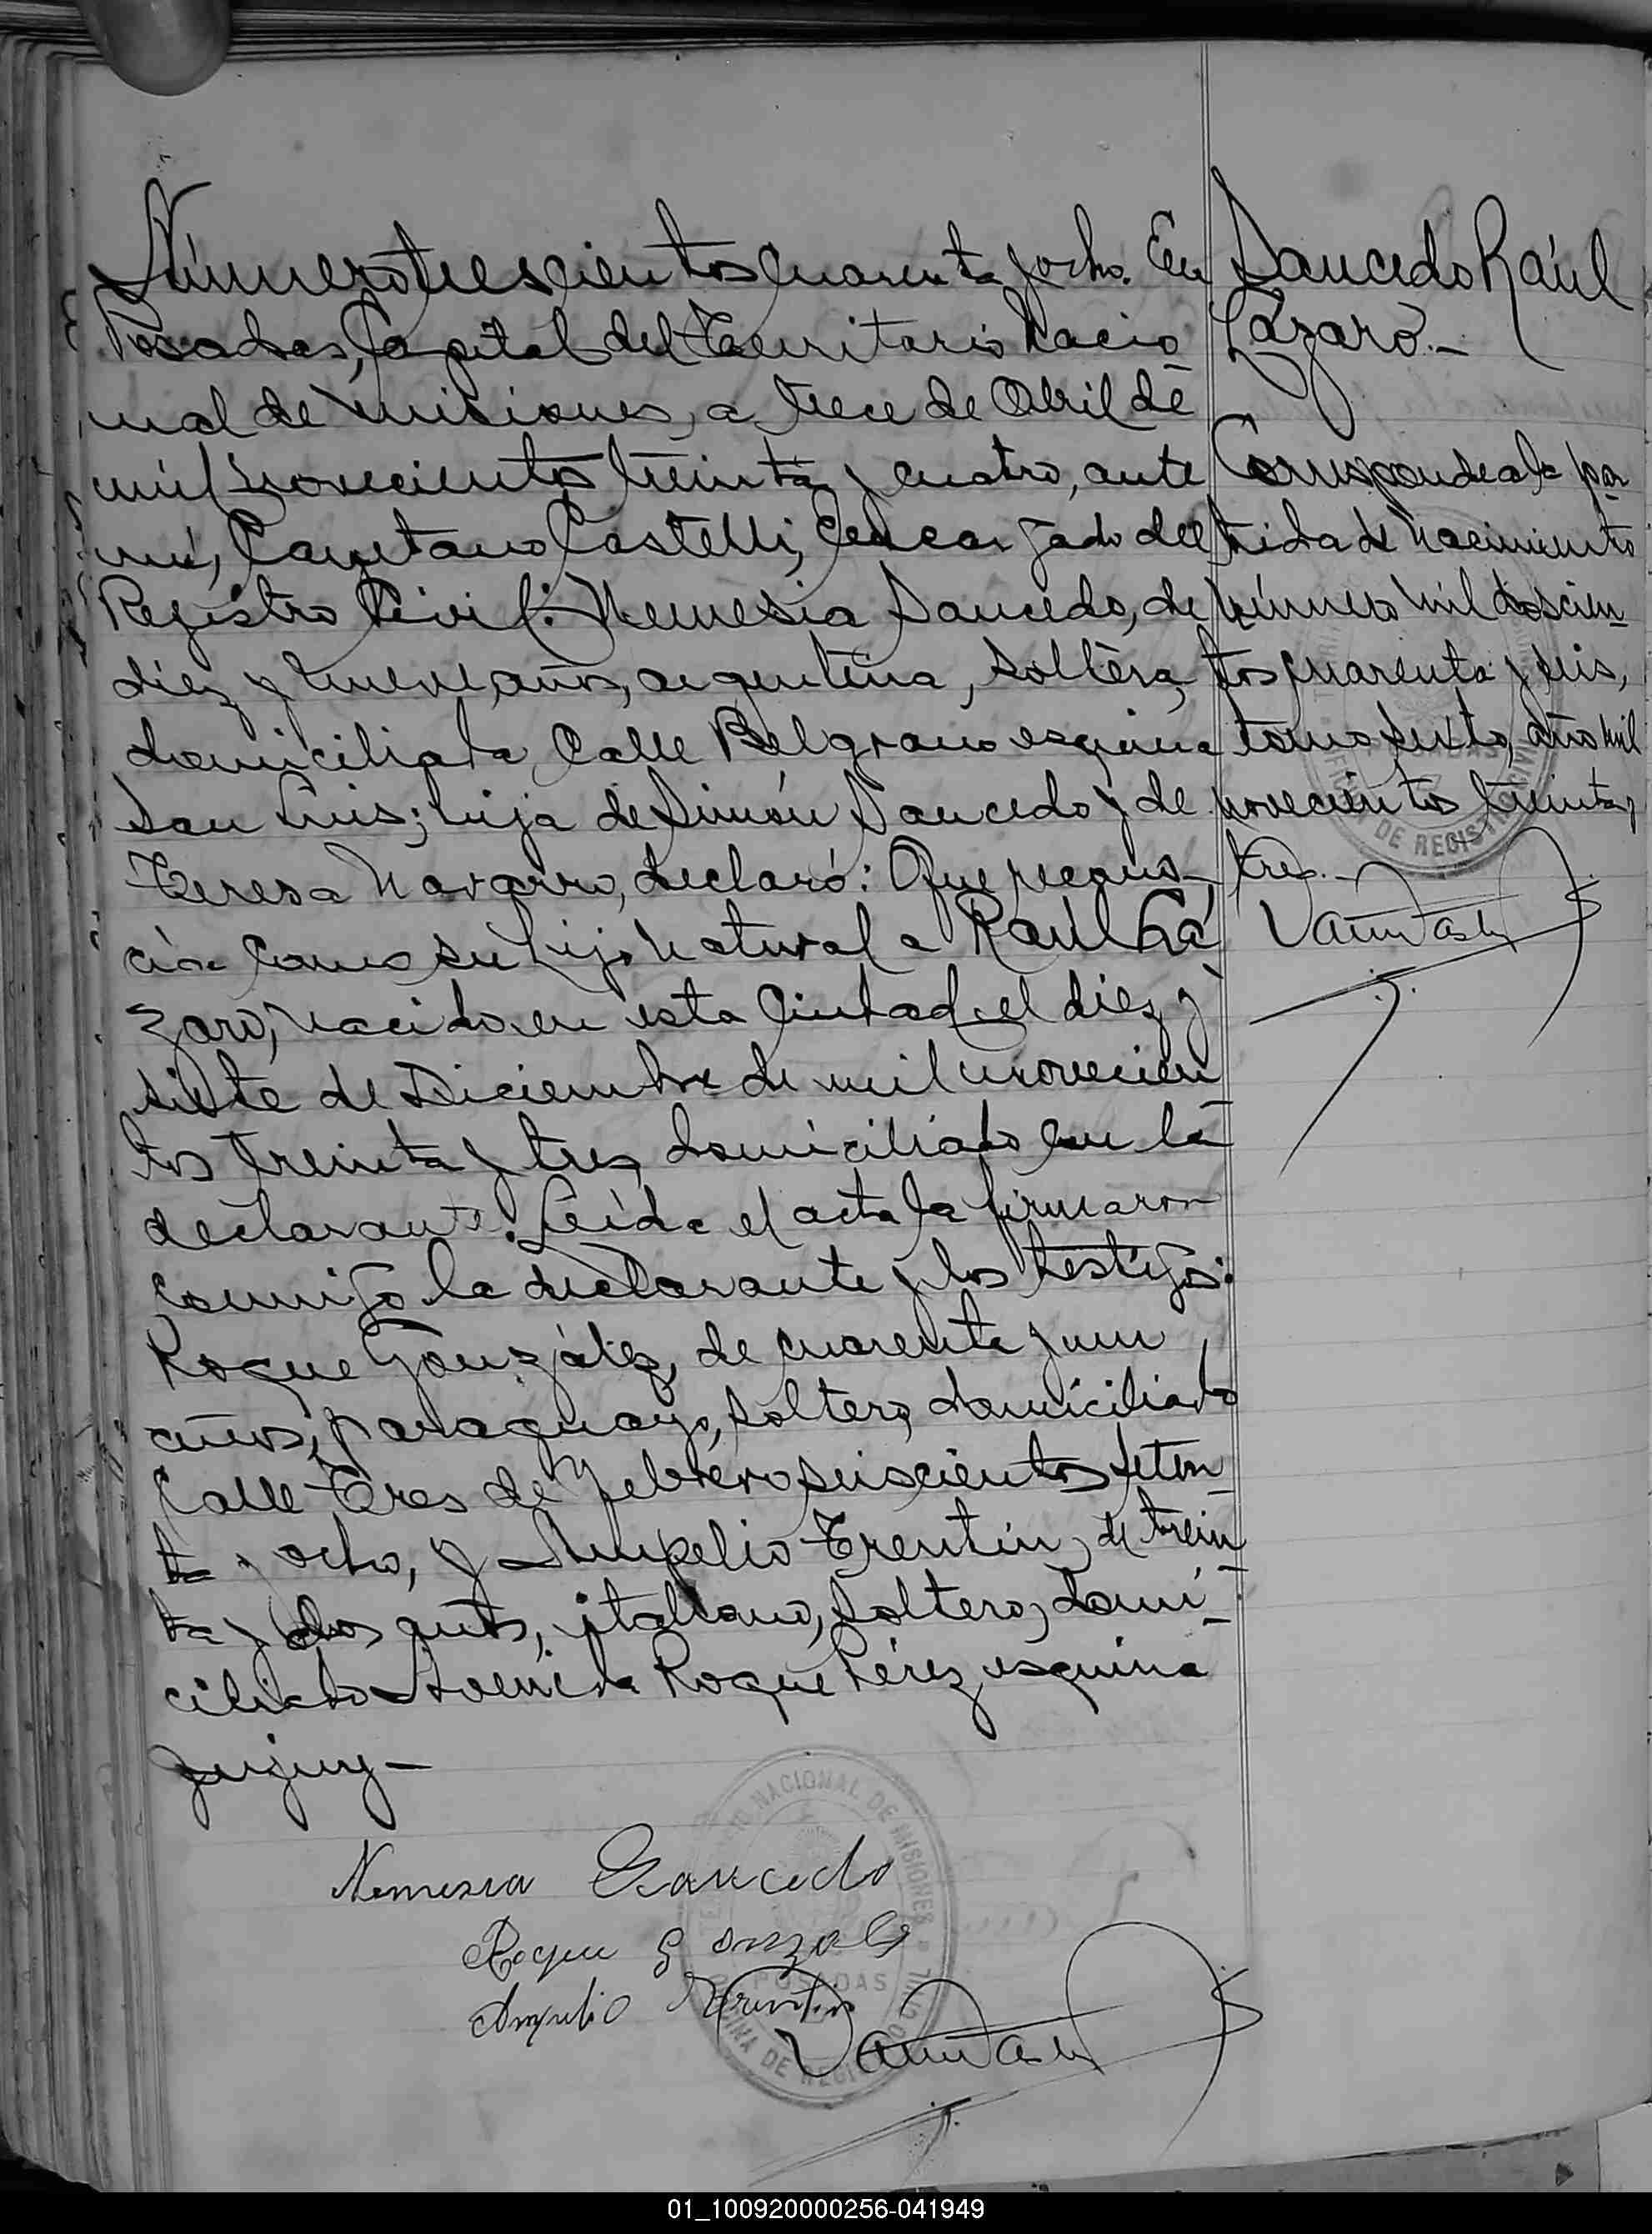 Número trescientos cuarenta y ocho. En
Posadas, Capital del Territorio Nacio
nal de Misiones, a trece de Abril de
mil novecientos treinta y cuatro, ante
mí, Cayetano Castelli, Encargado del
Registro Civil: Nemesia Saucedo, de
diez y nueve años, argentina, soltera,
domiciliada Calle Belgrano esquina
San Luis; hija de Simón Saucedo y de
Teresa Navarro, declaró: Que recono-
cía como su hijo natural a Raúl Lá
zaro, nacido en esta Ciudad el diez y
siete de Diciembre de mil novecien
tos treinta y tres, domiciliado con la
declarante. Leída el acta la firmaron
conmigo la declarante y los testigos:
Roque González, de cuarenta y un
años, paraguayo, soltero, domiciliado
Calle Tres de Febrero seiscientos seten
ta y ocho, y Ampelio Trentin, de trein
ta y dos años, italiano, soltero, domi-
ciliado Avenida Roque Pérez esquina
Jujuy—
Saucedo Raúl
Lázaro.—
Corresponde a la par
tida de Nacimiento
número mil doscien
tos cuarenta y seis,
tomo sexto, año mil
novecientos treinta y
tres.—
Nemesia Saucedo
Roque Gonzalez
Ampelio Trentin
TERRITORIO NACIONAL DE MISIONES
POSADAS
OFICINA DE REGISTRO CIVIL
01_100920000256-041949